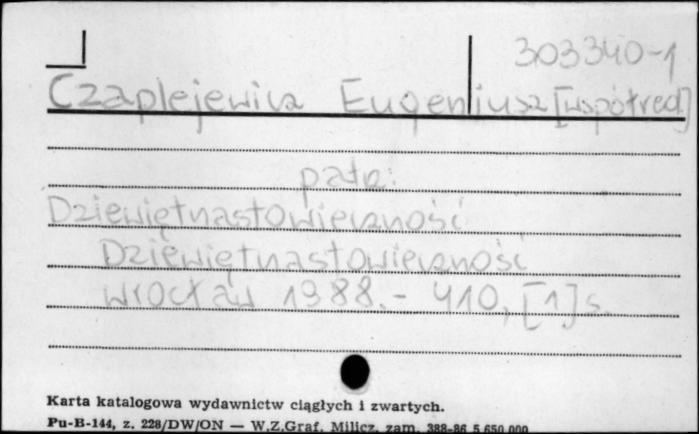 303340-1
Czaplejewicz Eugeniusz [współred]
patrz:
Dziewiętnastowieczność
Dziewiętnastowieczność
Wrocław 1988.- 410, [1] s.
Karta katalogowa wydawnictw ciągłych i zwartych.
Pu-B-144, z. 228/DW/ON — W.Z.Graf. Milicz, zam. 388-86 5.650.000